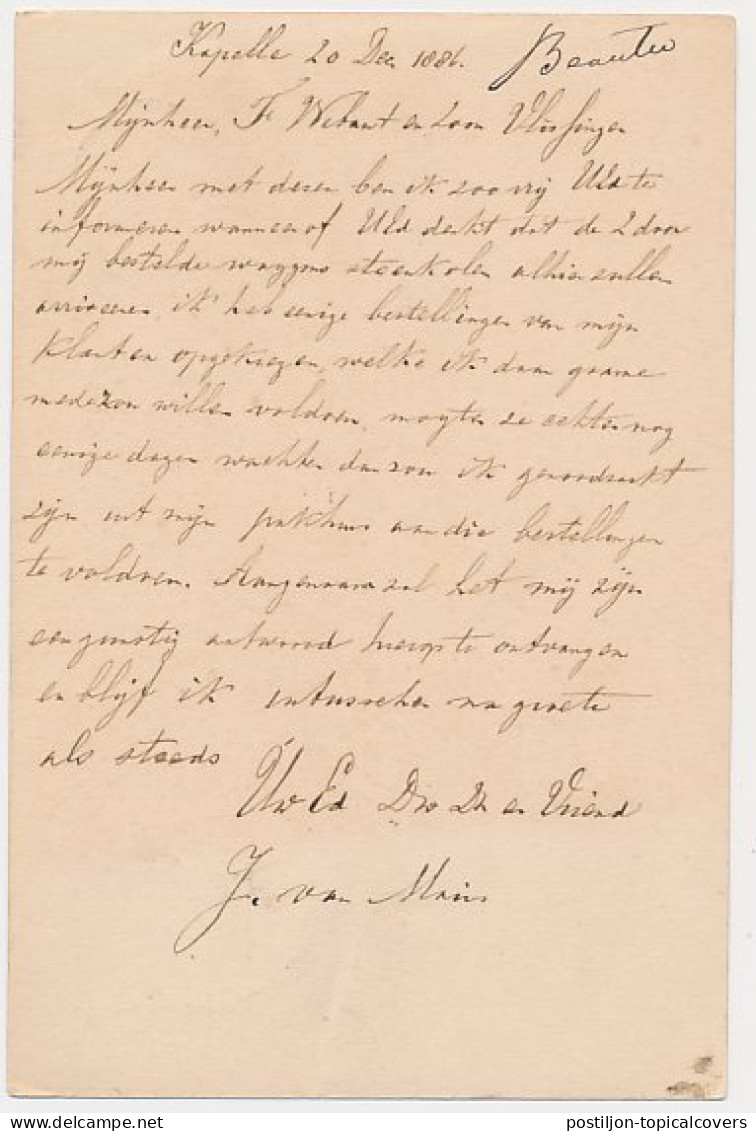 Kapelle 20 Dec 1886.
Mijnheer, F en Zoon Vlissingen
Mijnheer met dezen ben ik zoo vrij UEd te
informeren wanneer of UEd denkt dat de 2 door
mij bestelde waggons steenkolen alhier zullen
arriveeren, ik heb eenige bestellingen van mijn
klanten opgekregen, welke ik daar gaarne
mede zou willen voldoen, mogten ze echter nog
eenige dagen wachten dan zou ik genoodzaakt
zijn uit mijn pakhuis aan die bestellingen
te voldoen. Aangenaam zal het mij zijn
een gunstig antwoord hierop te ontvangen
en blijf ik intusschen na groete
als steeds
Uw Ed Dw Dr en Vriend
J. van
postiljon-topicalcovers